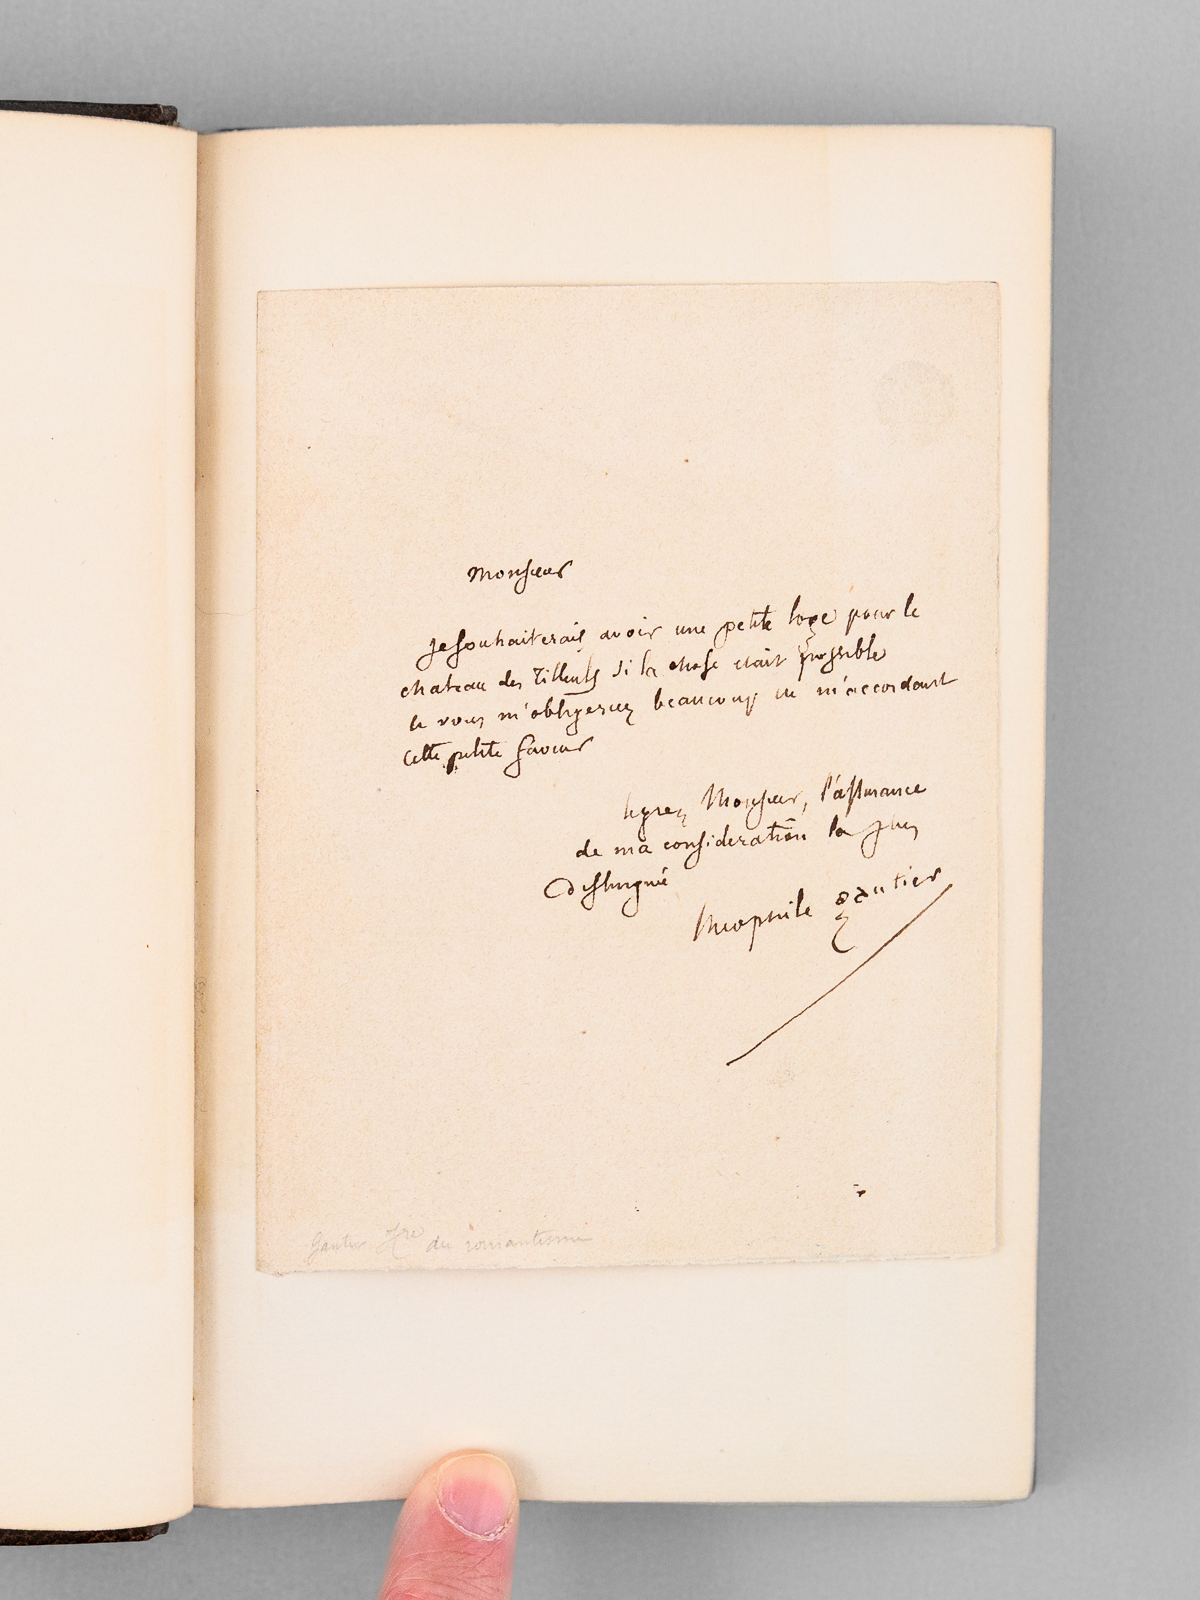 Monsieur
Je souhaiterais avoir une petite loge pour le
chateau des Tilleuls si la chose etait possible
et vous m'obligeriez beaucoup en m'accordant
cette petite faveur
Agreez Monsieur, l'assurance
de ma consideration la plus
Distinguée
Theophile Gautier
Gautier Hre du romantisme